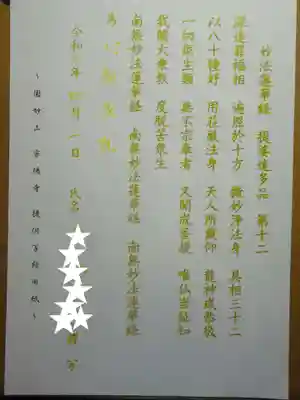 妙法蓮華経 提婆達多品 第十二
深達罪福相 遍照於十方 微妙浄法身 具相三十二
以八十種好 用荘厳法身 天人所戴仰 龍神咸恭敬
一切衆生類 無不宗奉者 又聞成菩提 唯仏当証知
我闡大乗教 度脱苦衆生
南無妙法蓮華経 南無妙法蓮華経 南無妙法蓮華経
為
令和 年 月一日 氏名
~ 圓妙山 写経用紙 ~